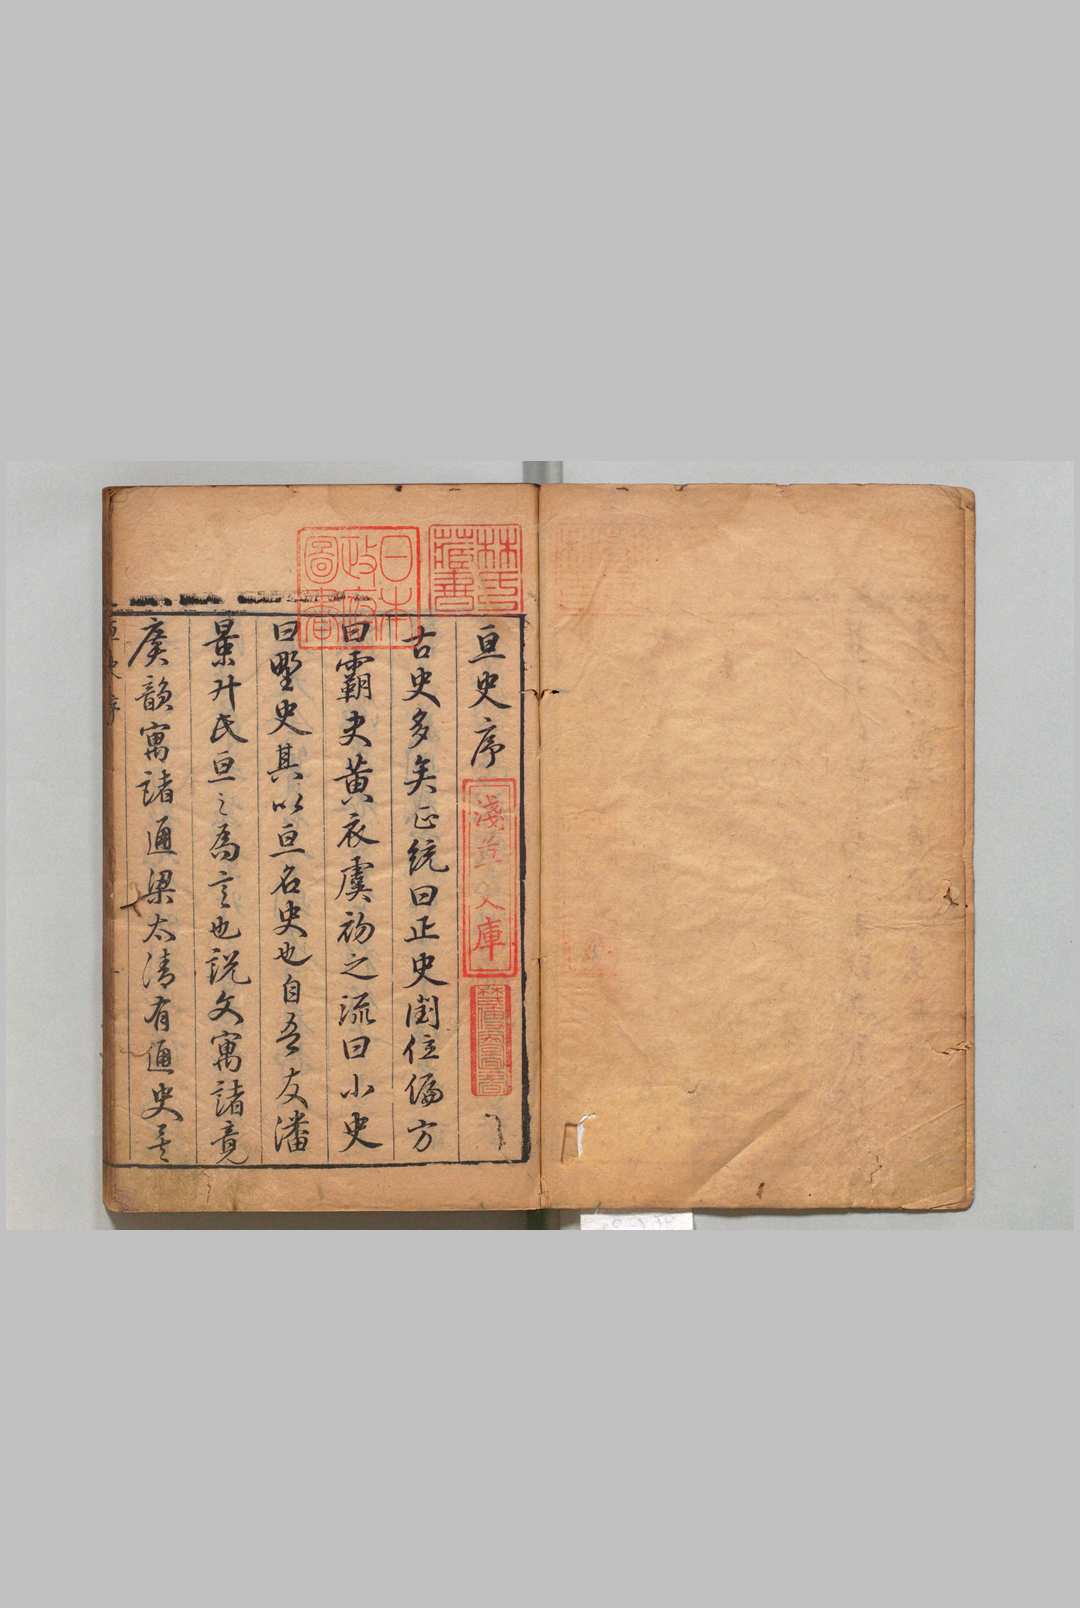 亘史序
古史多矣正統曰正史閏位偏方
曰霸史黃衣虞初之流曰小史
曰野史其以亘名史也自吾友潘
景升氏亘之為言也說文寓諸竟
廣韻寓諸通梁太清有通史
亘史序
林氏藏書
日本政府圖書
淺草文庫